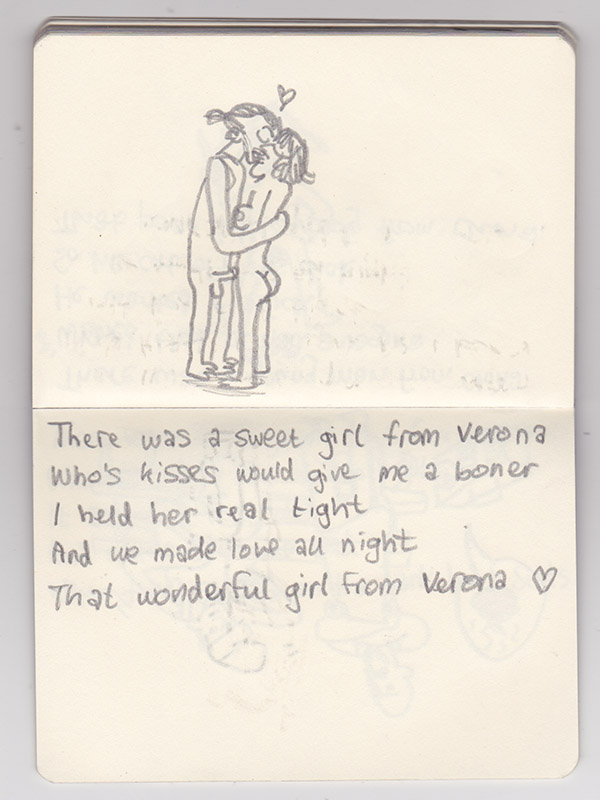 There was a sweet girl from Verona
Who's kisses would give me a boner
I held her real tight
And we made love all night
That wonderful girl from Verona ♡